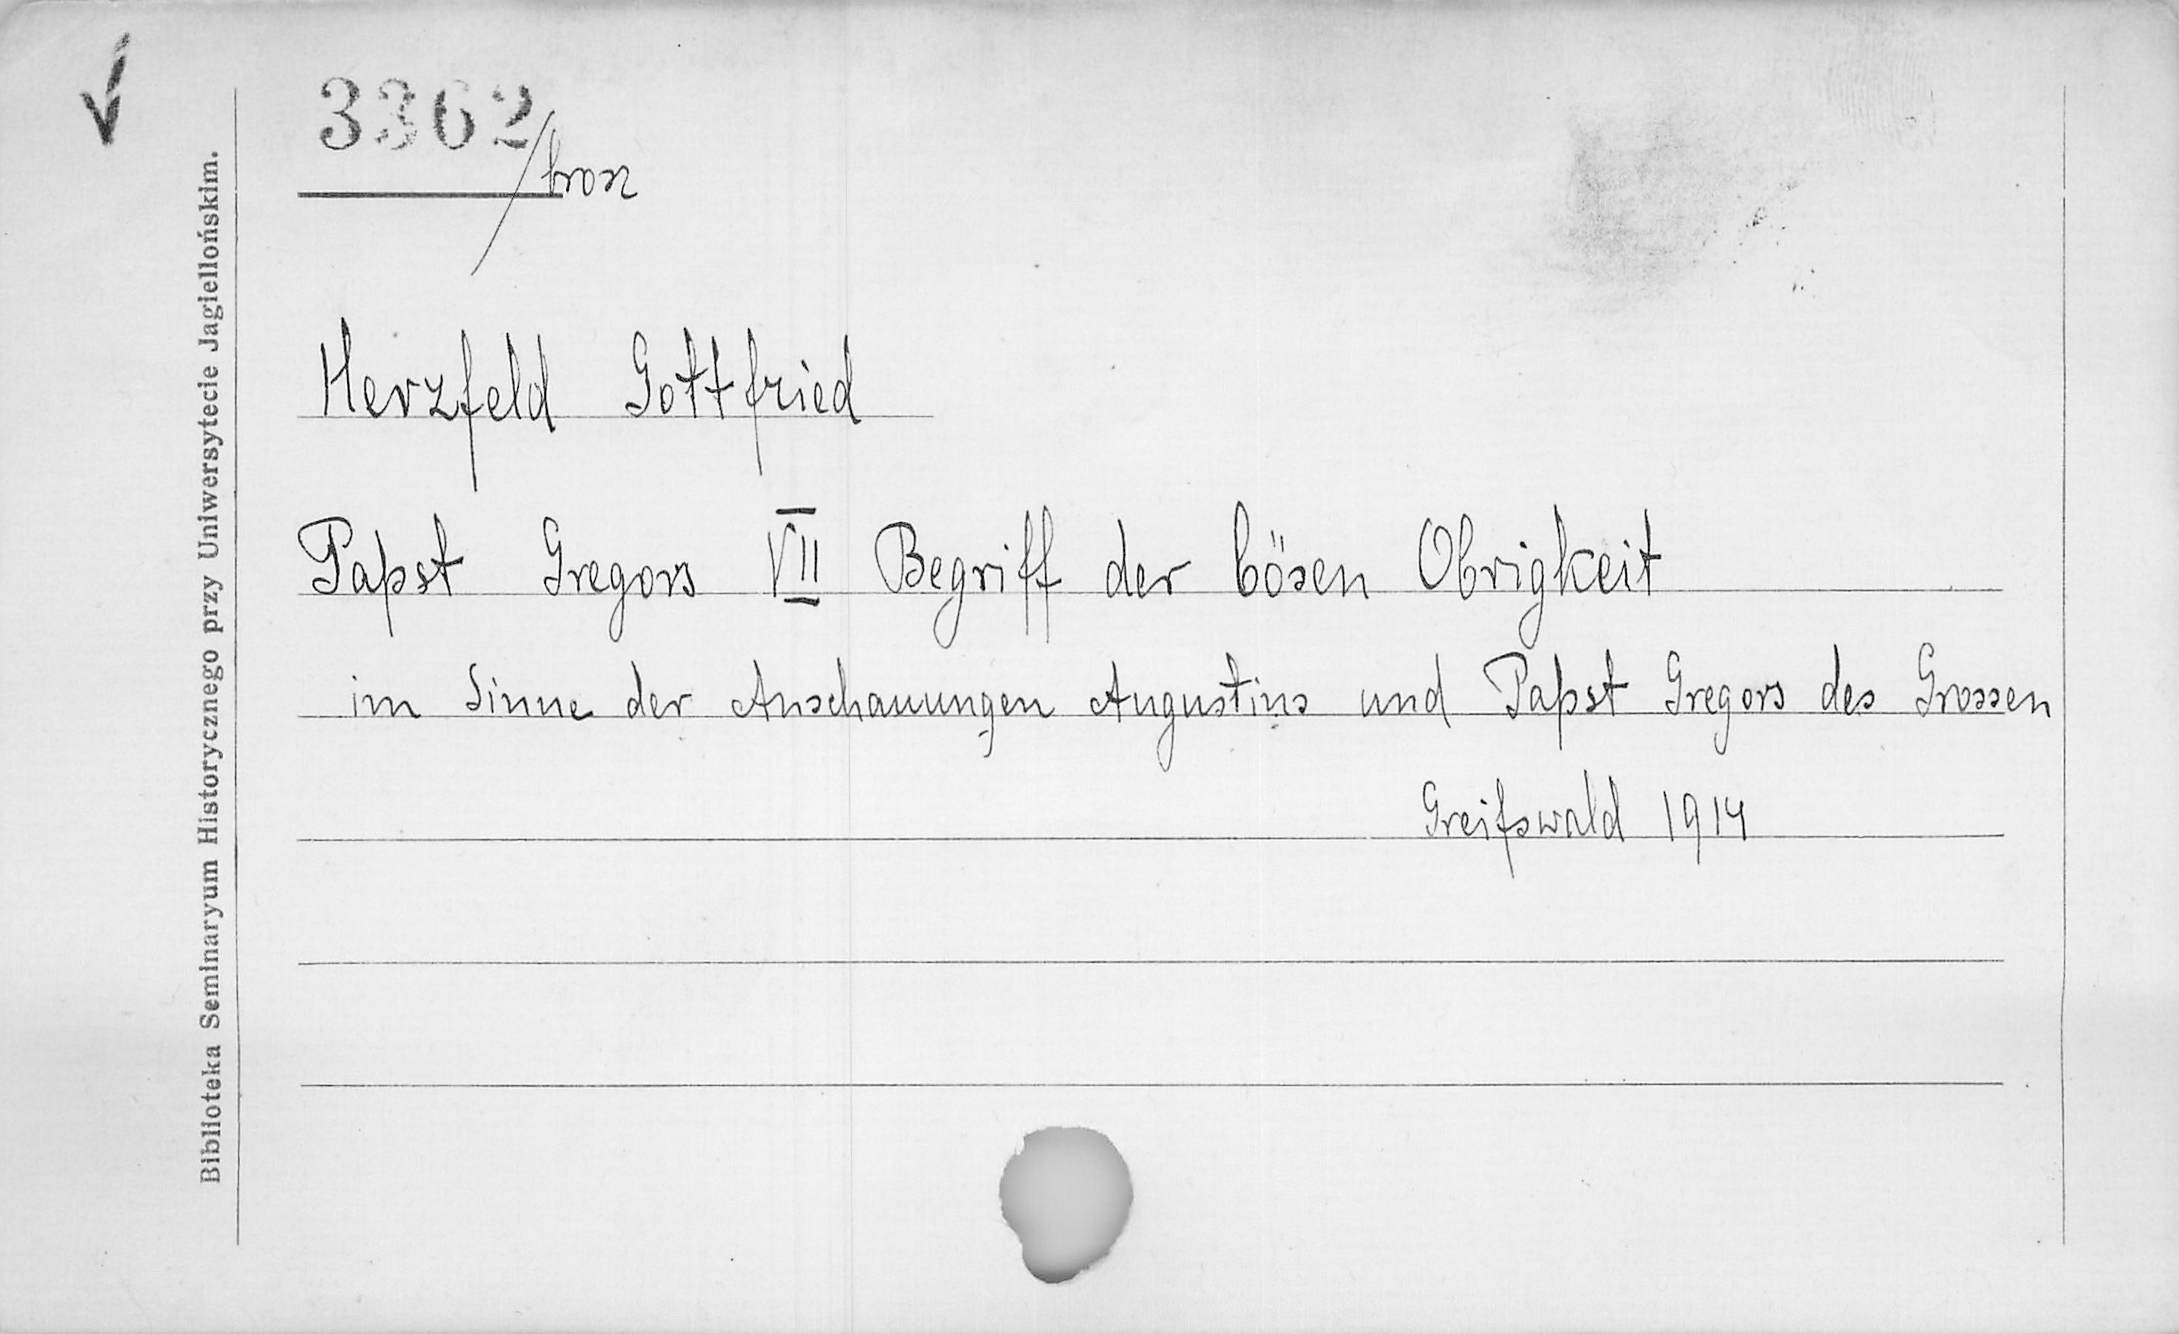 3362/bron
Herzfeld Gottfried
Papst Gregors VII Begriff der bösen Obrigkeit
im Sinne der Anschauungen Augustins und Papst Gregors des Grossen
Greifswald 1914
Biblioteka Seminaryum Historycznego przy Uniwersytecie Jagiellońskim.